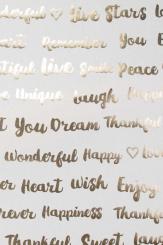 derful ♡ Live Stars
Remember You
tiful Live Smile Peace
Unique Laugh Happy
You Dream Thankful
Wonderful Happy ♡
er Heart Wish Enjoy
rever Happiness Thankful
Thankful Sweet Laugh